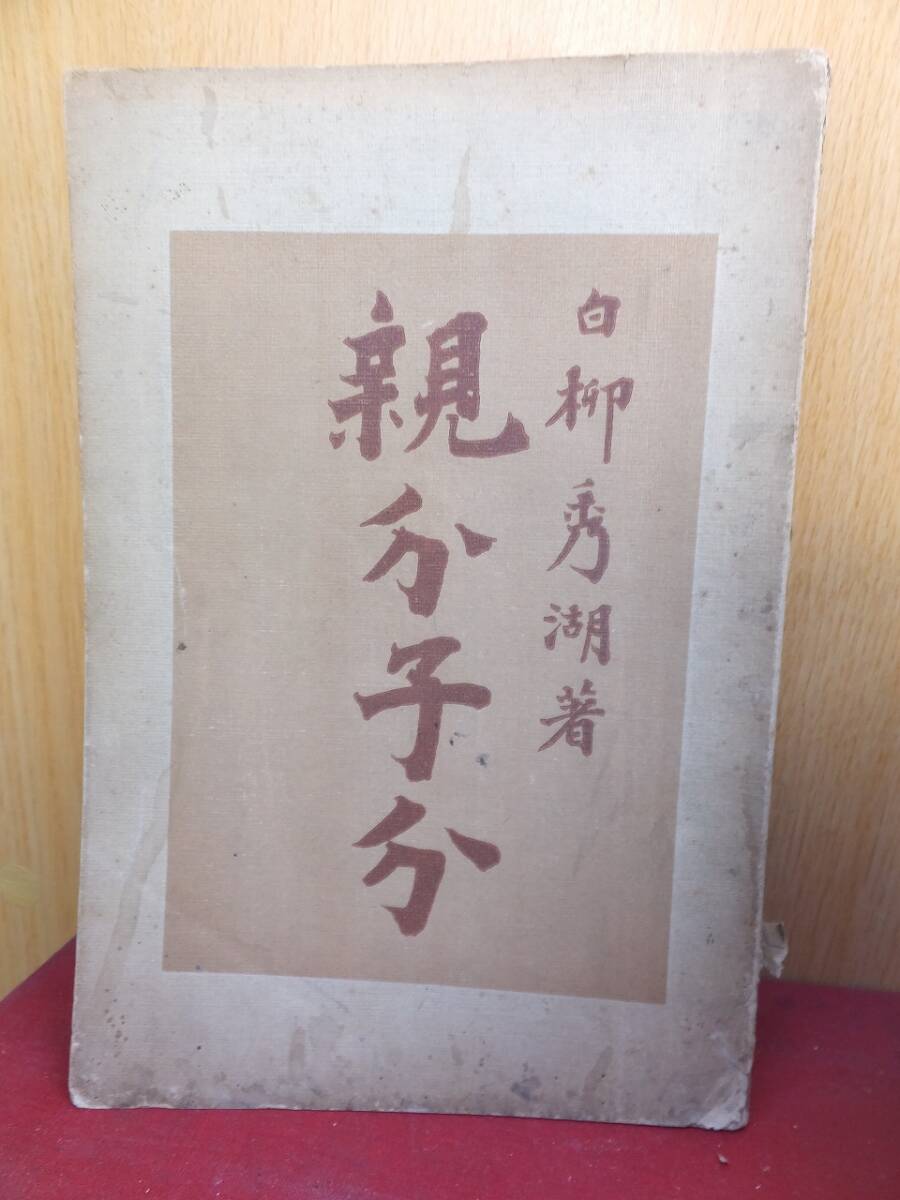 白柳秀湖著
親分子分